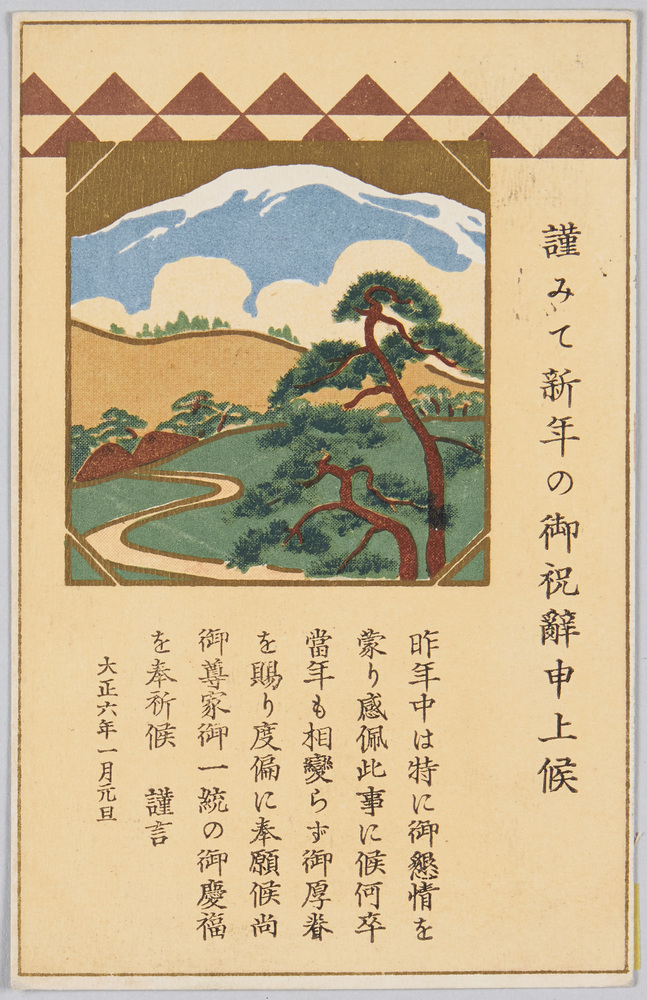 謹みて新年の御祝辭申上候
昨年中は特に御懇情を
蒙り感佩此事に候何卒
當年も相變らず御厚眷
を賜り度偏に奉願候尚
御尊家御一統の御慶福
を奉祈候 謹言
大正六年一月元旦